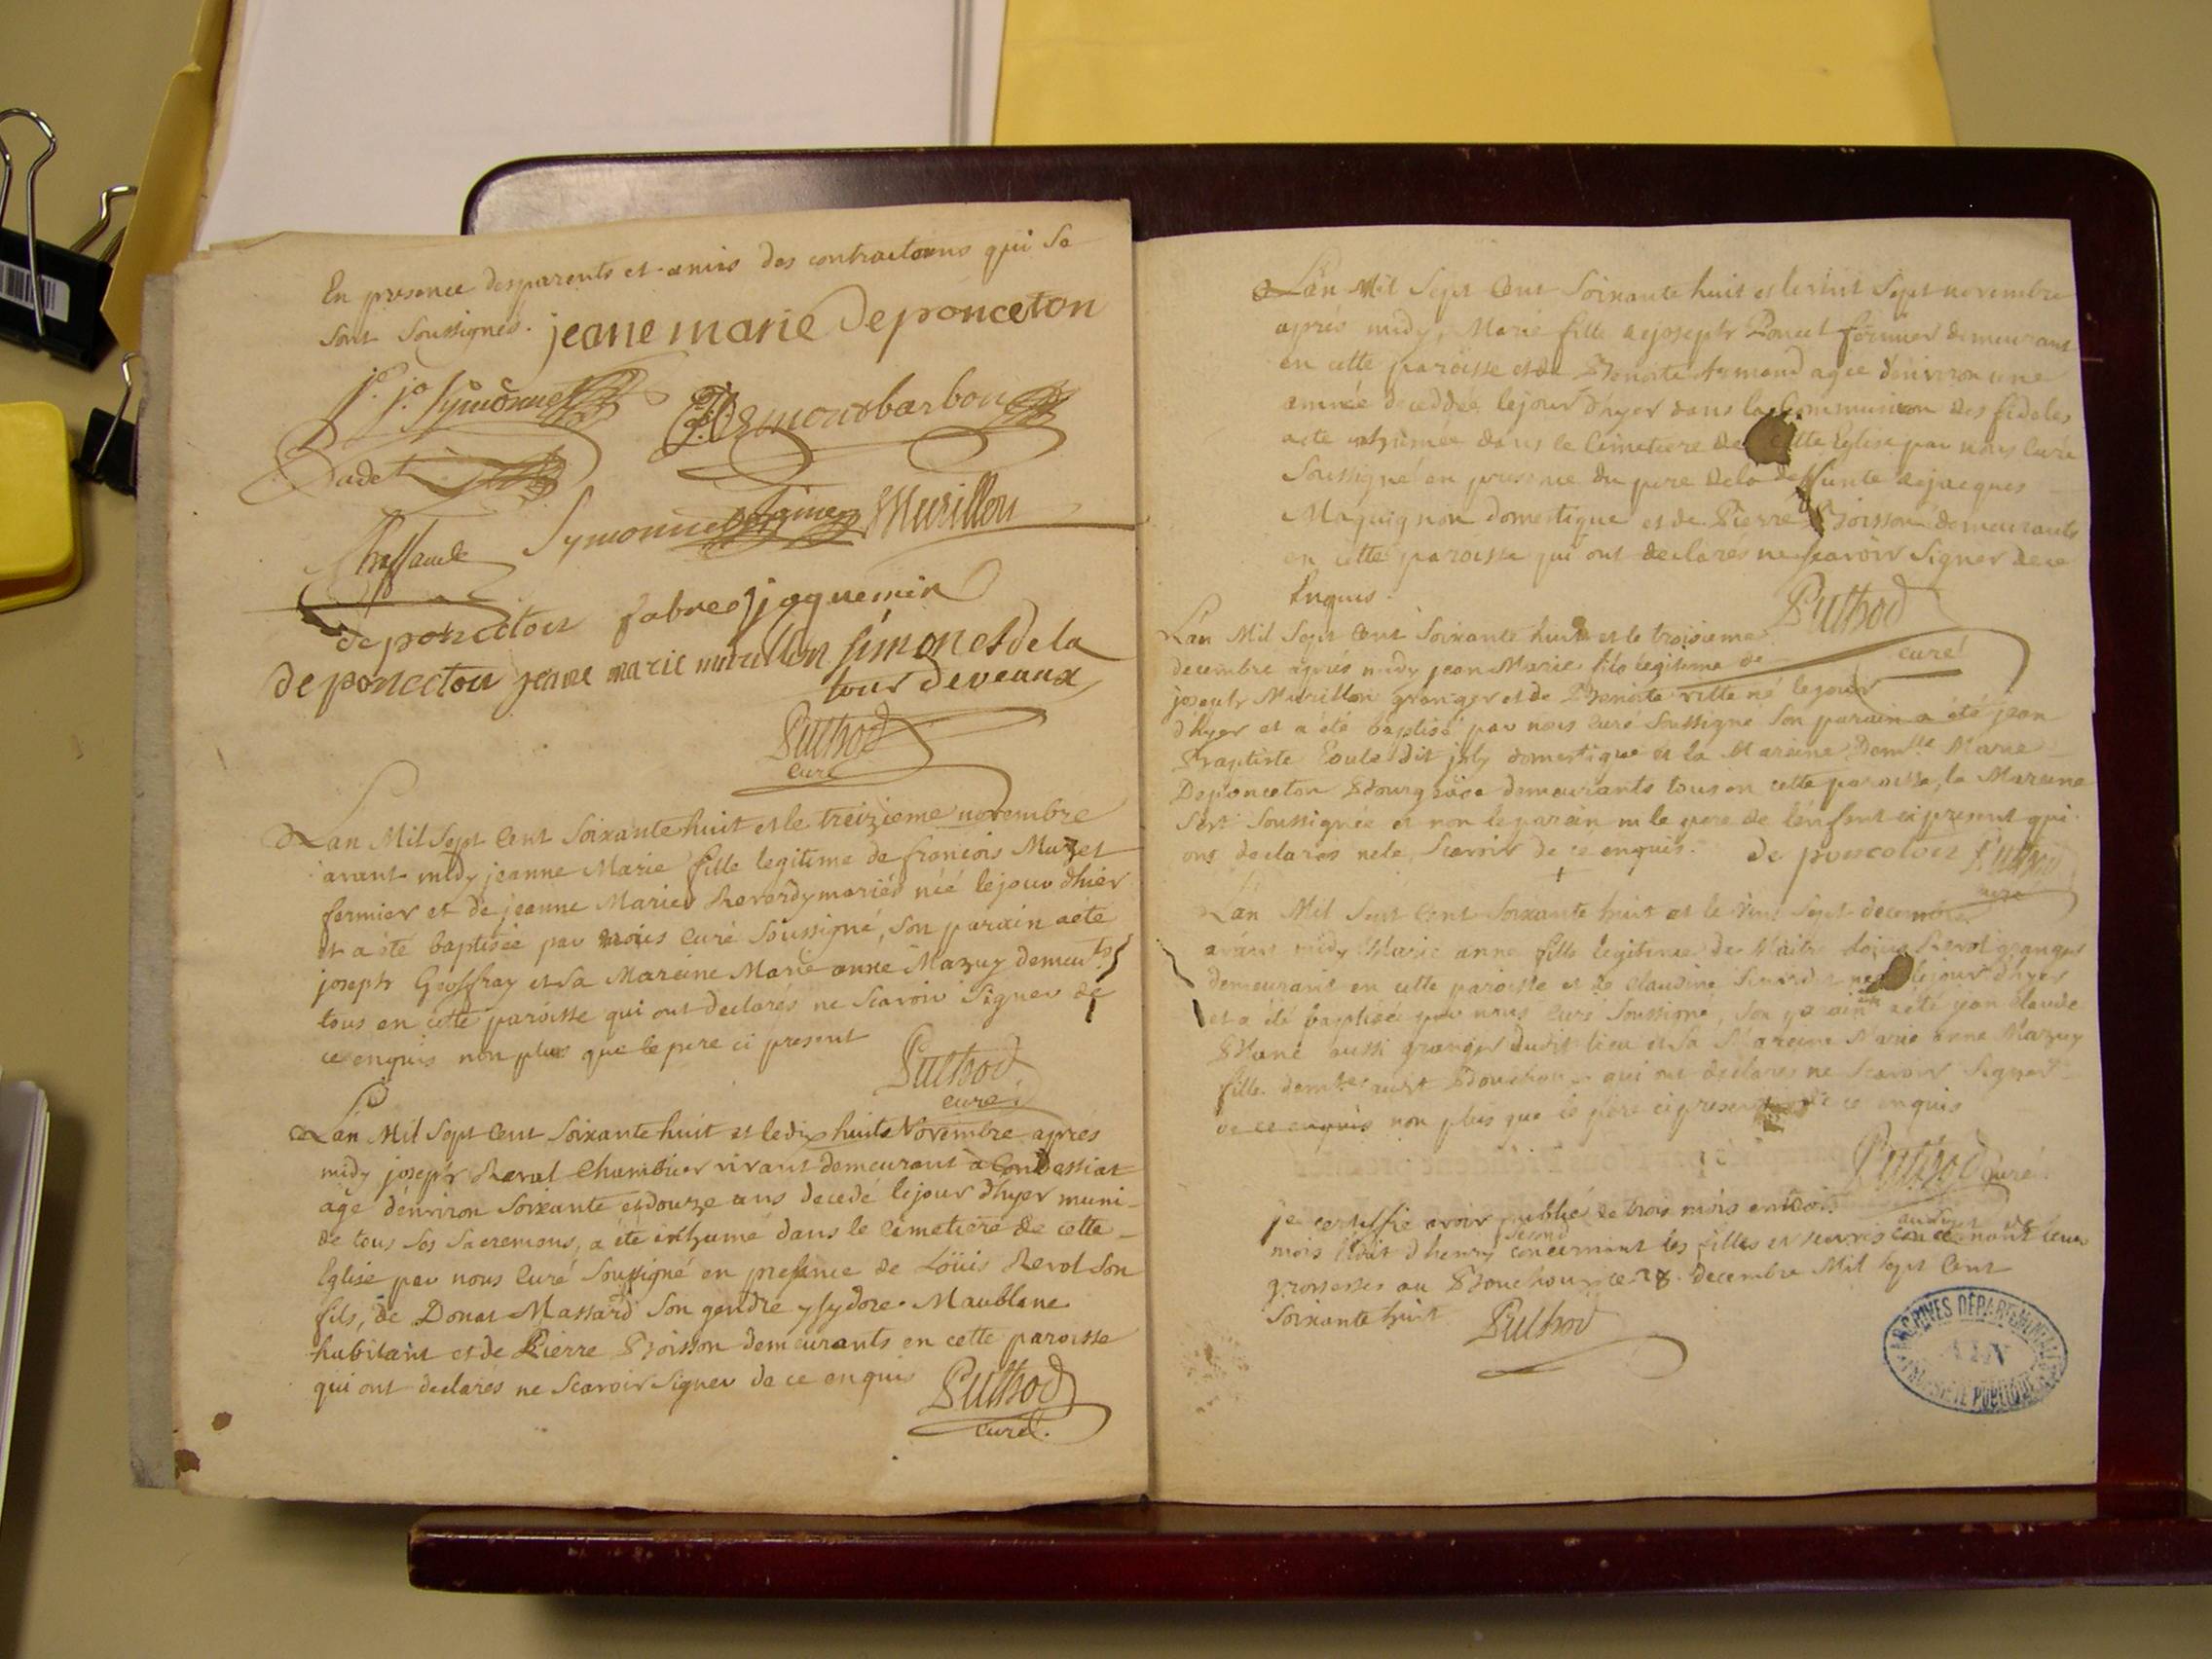 En presence des parents et amis des contractans qui se
sont soussignés. jeane marie deponceton
j. j. Symonnet
Cadet
Symonnet Murillon
Chassaude
deponceton fabre jaquemin
deponceton jeane marie murillon simonet de la
tour deveaux
Puthod
curé
L'an Mil Sept Cent Soixante huit et le treizieme novembre
avant midy jeanne Marie fille legitime de francois Mazet
fermier et de jeanne Marie Reverdy mariés née le jour d'hier
et a été baptisée par nous Curé soussigné, son parain a été
joseph Geoffray et sa Mareine Marie anne Mazuy demeuts
tous en cette paroisse qui ont declarés ne scavoir signer de
ce enquis non plus que le pere ci present
Puthod
curé
L'an Mil Sept Cent Soixante huit et le dix huit Novembre après
midy joseph Revol Chambier vivant demeurant a Condessiat
agé d'environ soixante et douze ans decedé le jour d'hyer muni
de tous ses sacremens, a été inhumé dans le Cimetiere de cette
Eglise par nous Curé soussigné en presence de Loüis Revol son
fils, de Donat Massard son gendre ysydore Maublanc
habitant et de Pierre Boisson demeurants en cette paroisse
qui ont declarés ne scavoir signer de ce enquis Puthod
curé.
L'an Mil Sept Cent Soixante huit et le vint Sept novembre
après midy, Marie fille de joseph Poncet fermier demeurant
en cette paroisse et de Benoite Armand agée d'environ une
année decedée le jour d'hyer dans la Communion des fideles
a été inhumée dans le Cimetiere de cette Eglise par nous Curé
soussigné en presence du pere de la deffunte de jacques
Maquignon domestique et de Pierre Boisson demeurants
en cette paroisse qui ont declarés ne scavoir signer de ce
Enquis. Puthod
curé
L'an Mil Sept Cent Soixante huit et le troisieme
decembre après midy jean Marie fils legitime de
joseph Murillon granger et de Benoite né le jour
d'hyer et a été baptisé par nous Curé soussigné son parain a été jean
Baptiste dit joly domestique et la Mareine Demlle Marie
Deponceton Bourgoise demeurants tous en cette paroisse, la Mareine
s'est soussignée et non le parain ni le pere de l'enfent ci present qui
ont declarés ne le scavoir de ce enquis. de ponceton Puthod
curé
L'an Mil Sept Cent Soixante huit et le vint Sept decembre
avant midy Marie anne fille legitime de Maitre Loüis Revol granger
demeurant en cette paroisse et de Claudine née le jour d'hyer
et a été baptisée par nous Curé soussigné, son parain a été jean Claude
aussi granger dudit lieu et sa Mareine Marie anne Mazuy
fille demte audit Bouchoux qui ont declarés ne scavoir signer
de ce enquis non plus que le pere ci present de ce enquis
Puthod curé.
je certiffie avoir publié de trois mois en trois
mois l'edit d'henry second concernant les filles et veuves leur
grossesses au Bouchoux ce 28 decembre Mil Sept Cent
Soixante huit Puthod
ARCHIVES DÉPARTEMENTALES
AIN
PROPRIÉTÉ PUBLIQUE